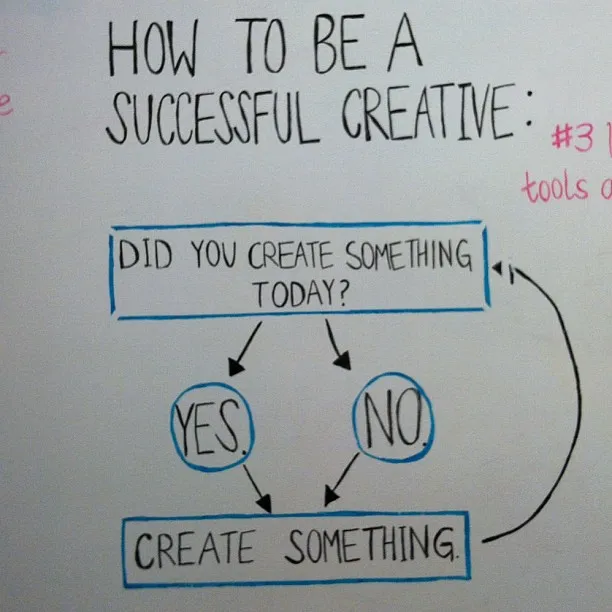 HOW TO BE A
SUCCESSFUL CREATIVE:
#3
tools
DID YOU CREATE SOMETHING
TODAY?
YES.
NO.
CREATE SOMETHING.